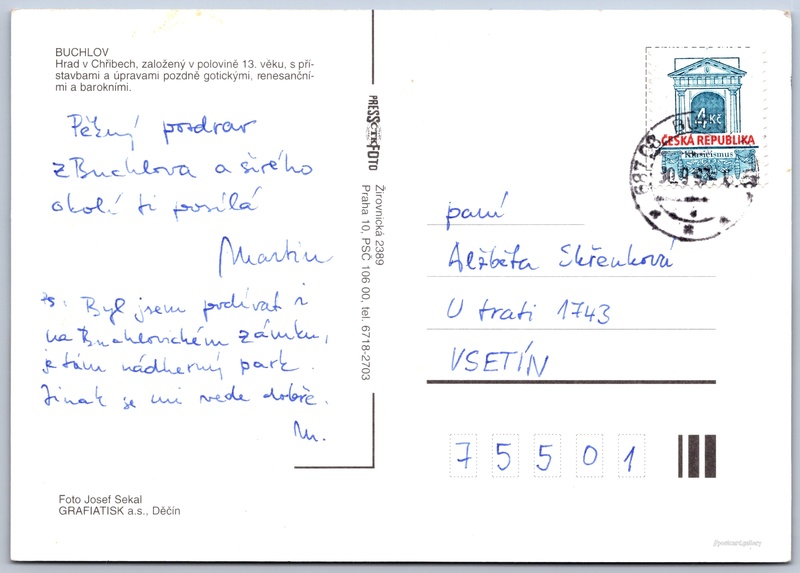 BUCHLOV
Hrad v Chřibech, založený v polovině 13. věku, s pří-
stavbami a úpravami pozdně gotickými, renesanční-
mi a barokními.
Pěkný pozdrav
z Buchlova a širého
okolí ti posílá
Martin
PS. Byl jsem podívat i
na Buchlovickém zámku,
je tam nádherný park.
Jinak se mi vede dobře.
M.
Foto Josef Sekal
GRAFIATISK a.s., Děčín
PRESSFOTO
Žirovnická 2389
Praha 10, PSČ 106 00, tel. 6718-2703
4 Kč
ČESKÁ REPUBLIKA
Klasicismus
687 08 BU
30.9.
paní
Alžběta Skřenková
U trati 1743
VSETÍN
75501
postcart.gallery